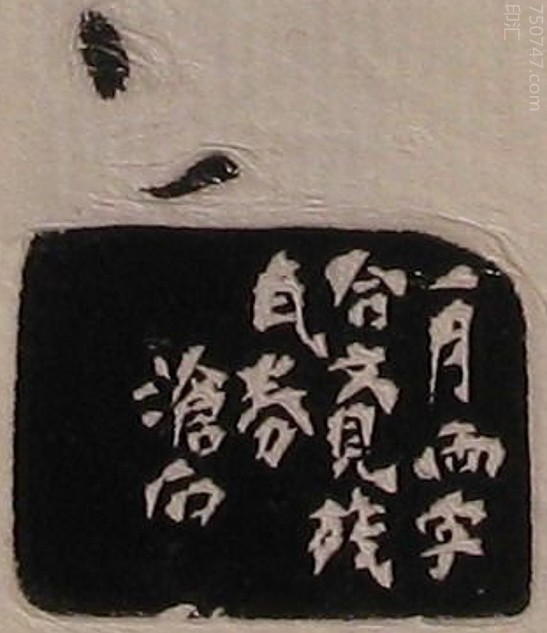 一月兩字
合文見殘
瓦券
滄石
750747.com
印汇